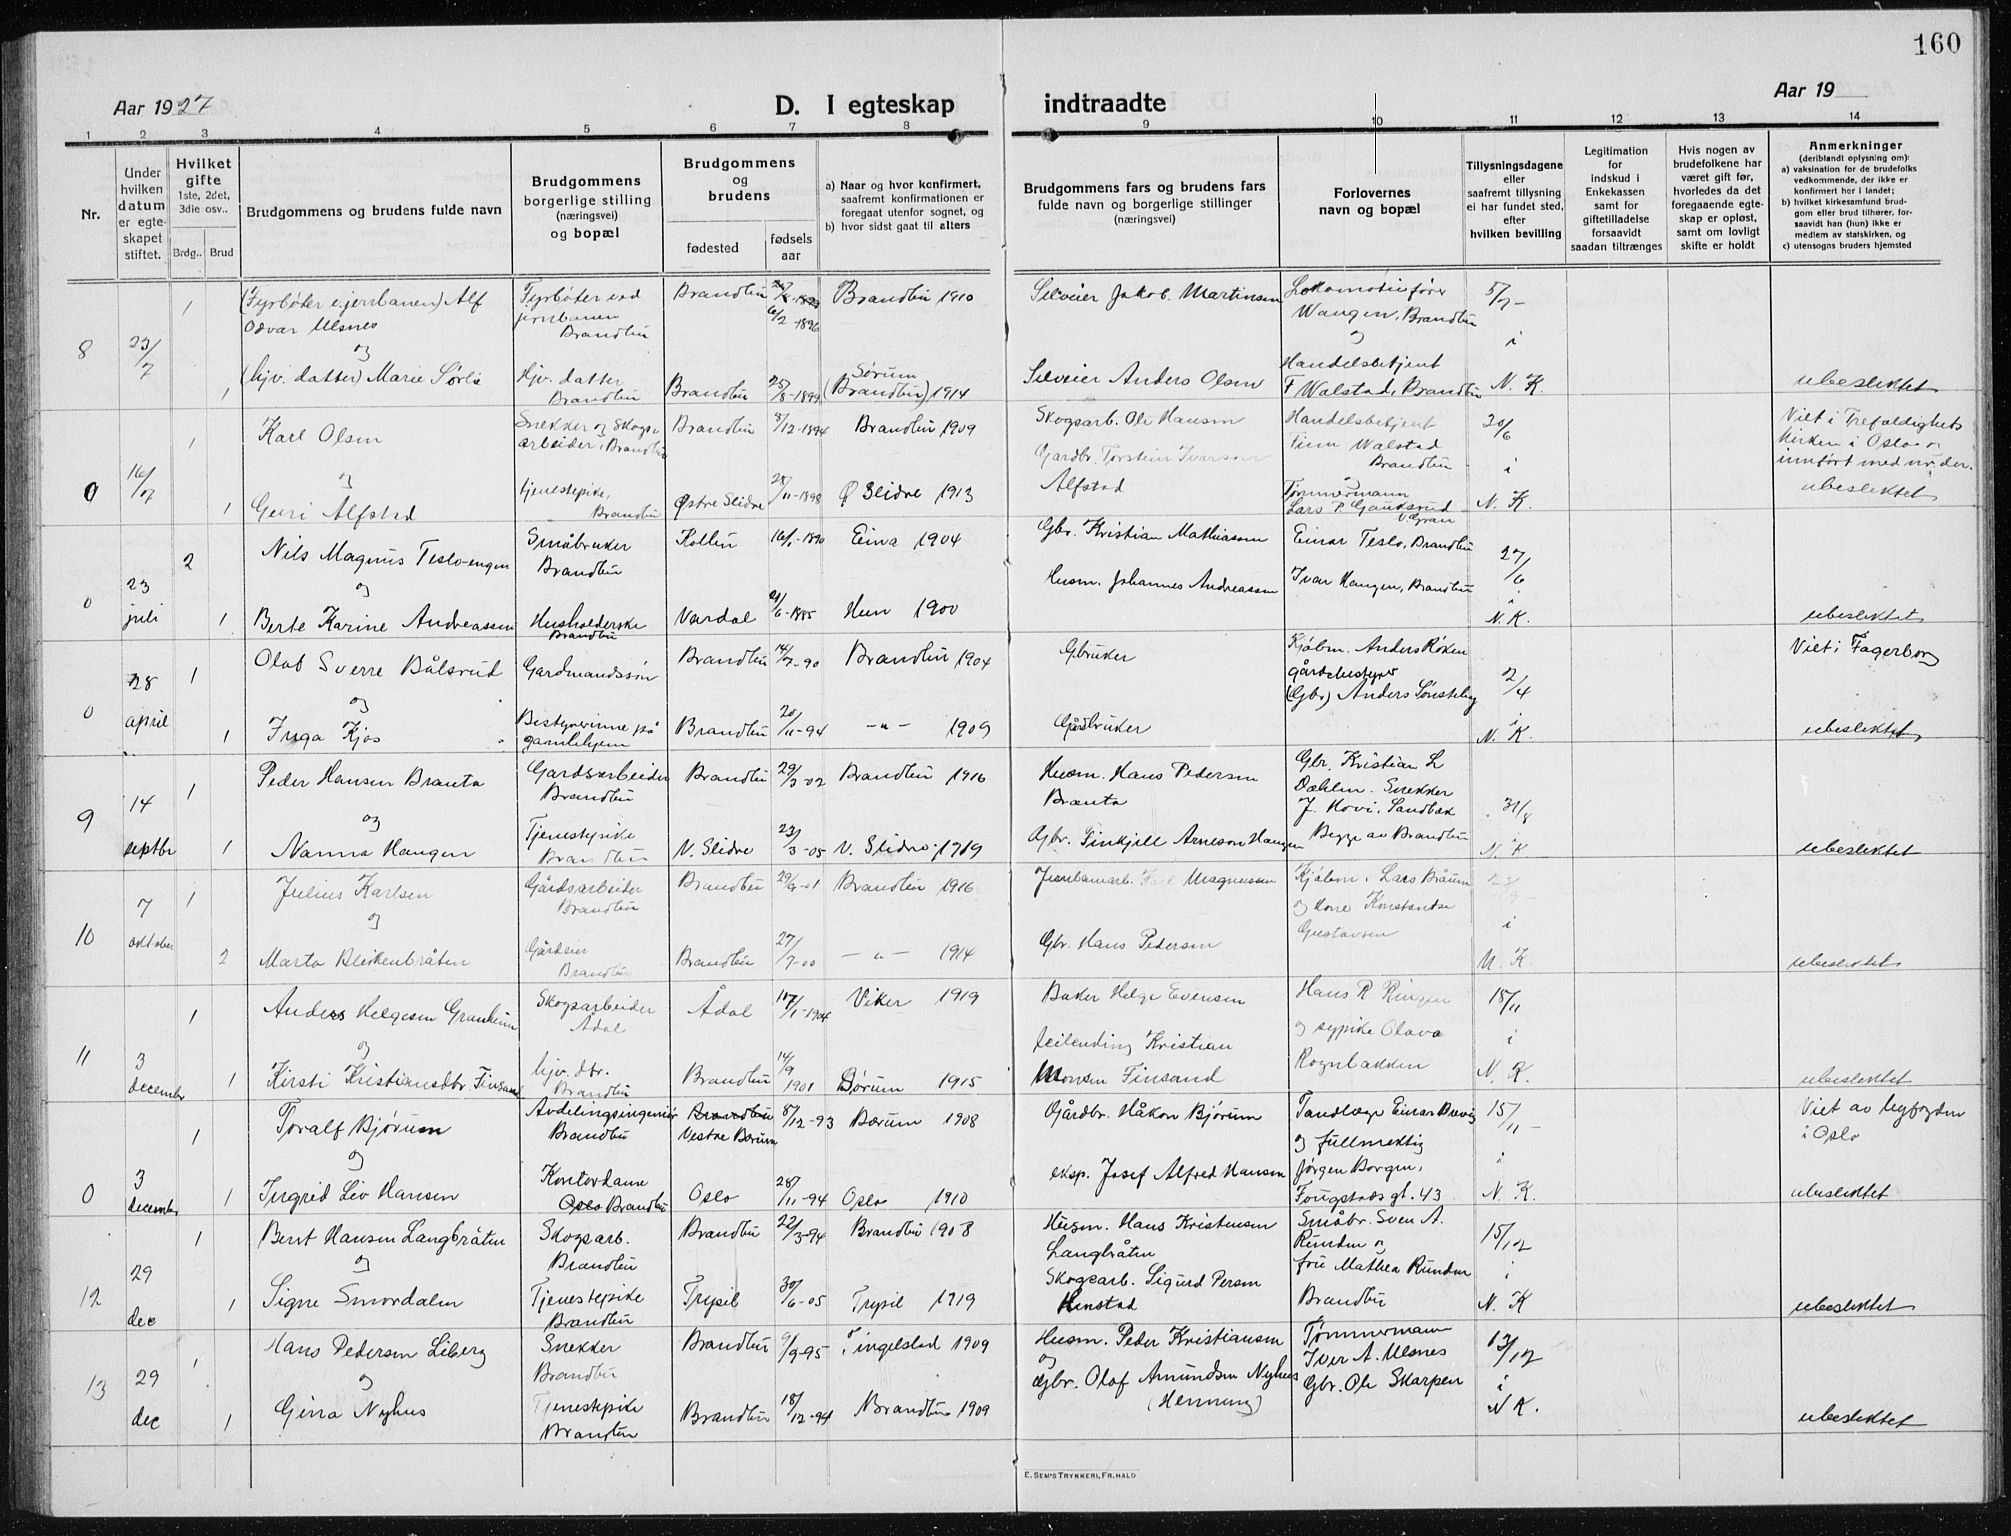 160
Aar 1927
D. I egteskap
indtraadte
Aar 19
1 2 3 4 5 6 7 8 9 10 11 12 13 14
Nr.
Under hvilken datum er egteskapet stiftet.
Hvilket gifte
1ste, 2det, 3die osv..
Brdg.. Brud
Brudgommens og brudens fulde navn
Brudgommens borgerlige stilling (næringsvei) og bopæl
Brudgommens og brudens
fødested
fødselsaar
a) Naar og hvor konfirmert, saafremt konfirmationen er foregaat utenfor sognet, og
b) hvor sidst gaat til alters
Brudgommens fars og brudens fars fulde navn og borgerlige stillinger (næringsvei)
Forlovernes navn og bopæl
Tillysningsdagene eller saafremt tillysning ei har fundet sted, efter hvilken bevilling
Legitimation for indskud i Enkekassen samt for giftetilladelse forsaavidt saadan tiltrænges
Hvis nogen av brudefolkene har været gift før, hvorledes da det foregaaende egteskap er opløst, samt om lovligt skifte er holdt
Anmerkninger
(deriblandt oplysning om):
a) vaksination for de brudefolks vedkommende, der ikke er konfirmert her i landet;
b) hvilket kirkesamfund brudgom eller brud tilhører, forsaavidt han (hun) ikke er medlem av statskirken, og
c) utensogns bruders hjemsted
8 23/7
1 (Fyrbøter v. jernbanen) Alf Odvar Ulsnes
Fyrbøter ved jernbanen Brandbu
Brandbu 6/2-1896 Brandbu 1910
Jakob Martinsen
Lokomotivfører Wangen, Brandbu
5/7 - i N. K.
og
1 (hjv. datter) Marie Sørlie
Hjv. datter Brandbu
Brandbu 25/8-1899 Sørum (Brandbu) 1914
Anders Olsen
og Handelsbetjent F Walstad, Brandbu
ubeslektet
0 16/7
1 Karl Olsen
Snekker og Skogsarbeider, Brandbu
Brandbu 8/12-1894 Brandbu 1909
Skogsarb. Ole Hansen
Handelsbetjent Finn Walstad Brandbu
30/6 i N. K.
Viet i Trefoldighetskirken i Oslo
og
1 Guri Alfstad
tjenestepike, Brandbu
Østre Slidre 28/11-1898 Ø Slidre 1913
Gardbr. Torstein Ivarson Alfstad
Tømmermann Lars P. Gran
ubeslektet
0 23 juli
2 Nils Magnus Teslo-engen
Småbruker Brandbu
Kolbu 16/1-1890 Eina 1904
Gbr. Kristian Mathiassen
Einar Teslo, Brandbu
27/6 i N. K.
og
1 Berte Karine Andreassen
Husholderske Brandbu
Vardal 21/6-1885 Hun 1900
Husm. Johannes Andreassen
Ivar Haugen, Brandbu
ubeslektet
0 28 april
1 Olav Sverre Bålsrud
Gardmandssøn
Brandbu 14/7-90 Brandbu 1904
Gbruker
Kjøbm. Anders Røken
2/4 i N. K.
Viet i Fagerborg
og
1 Inga Kjos
Bestyrerinne på gamlehjem
Brandbu 20/11-94 -"- 1909
Gårdbruker
gårdsbestyrer (Gbr) Anders Sønsteby
ubeslektet
9 14 septbr
1 Peder Hansen Brænta
Gardsarbeider Brandbu
Brandbu 29/3-02 Brandbu 1916
Husm. Hans Pedersen Brænta
Gbr. Kristian L Dæhlen. Snekker J. Hovi, Sandbæk
31/8 i N. K
og
1 Nanna Haugen
Tjenestepike Brandbu
V. Slidre 23/3-05 V. Slidre 1919
Gbr. Arneson Haugen
Begge av Brandbu
ubeslektet
10 7 oktober
1 Julius Karlsen
Gårdsarbeider Brandbu
Brandbu 29/9-01 Brandbu 1916
Jernbanearb. Karl Magnussen
Kjøbm. Lars Bråum
i N. K.
og
2 Marta Bleikenbråten
Gårdeier Brandbu
Brandbu 27/7-00 -"- 1914
Gbr. Hans Pedersen
og kone Konstanse Gustavsen
ubeslektet
11 3 decembr
1 Anders Helgesen Granheim
Skogsarbeider Ådal
Ådal 10/1-1904 Viker 1919
Baker Helge Evensen
Hans R Ringen
18/11 i N. K.
og
1 Kirsti Kristiansdtr. Finsand
hjv. dtr. Brandbu
Brandbu 14/9 1901 Sørum 1915
Leilending Kristian Monsen Finsand
og sypike Olava Rognbakken
ubeslektet
0 3 decembr
1 Toralf Bjørum
Avdelingsingeniør Brandbu
Brandbu Vestre Bærum 8/12-93 Bærum 1908
Gårdbr. Håkon Bjørum
Tandlæge Einar Brevig
15/11- i N. K.
Viet av byfogden i Oslo
og
1 Ingrid Liv Hansen
Kontordame Oslo Brandbu
Oslo 28/11-94 Oslo 1910
eksp. Josef Alfred Hansen
og fullmektig Jørgen Borgen, Fougstads gt. 43
ubeslektet
12 29 dec
1 Bent Hansen Langbråten
Skogsarb. Brandbu
Brandbu 22/3-94 Brandbu 1908
Husm. Hans Kristensen Langbråten
Småbr. Sven A. Runden og
15/12 i N. K
og
1 Signe Smordalen
Tjenestepike Brandbu
Trysil 30/6-05 Trysil 1919
Skogsarb. Sigurd Persen
frue Mathea Runden Brandbu
ubeslektet
13 29 dec
1 Hans Pedersen Liberg
Snekker Brandbu
Brandbu 9/9-95 Tingelstad 1909
Husm. Peder Kristiansen
Tømmermann Iver A. Ulsnes
13/12 i N K.
og
1 Gina Nyhus
Tjenestepike Brandbu
Brandbu 18/12-94 Brandbu 1909
og Gbr. Olaf Amundsen Nyhus (Hennung)
Gbr. Ole Skarpen
ubeslektet
E. SEM'S TRYKKERI, FR.HALD